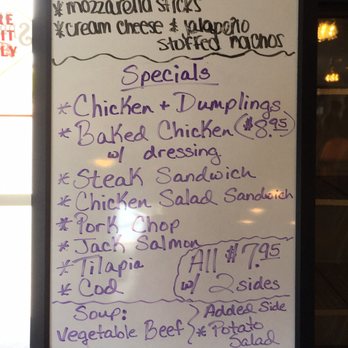 RE
IT
LY
*mozzarella sticks
*cream cheese & jalapeño
stuffed nachos
Specials
*Chicken + Dumplings
*Baked Chicken $8.95
w/ dressing
*Steak Sandwich
*Chicken Salad Sandwich
*Pork Chop
*Jack Salmon
*Tilapia
*Cod
All $7.95
w/ 2 sides
Soup:
Vegetable Beef
Added Side
*Potato
Salad